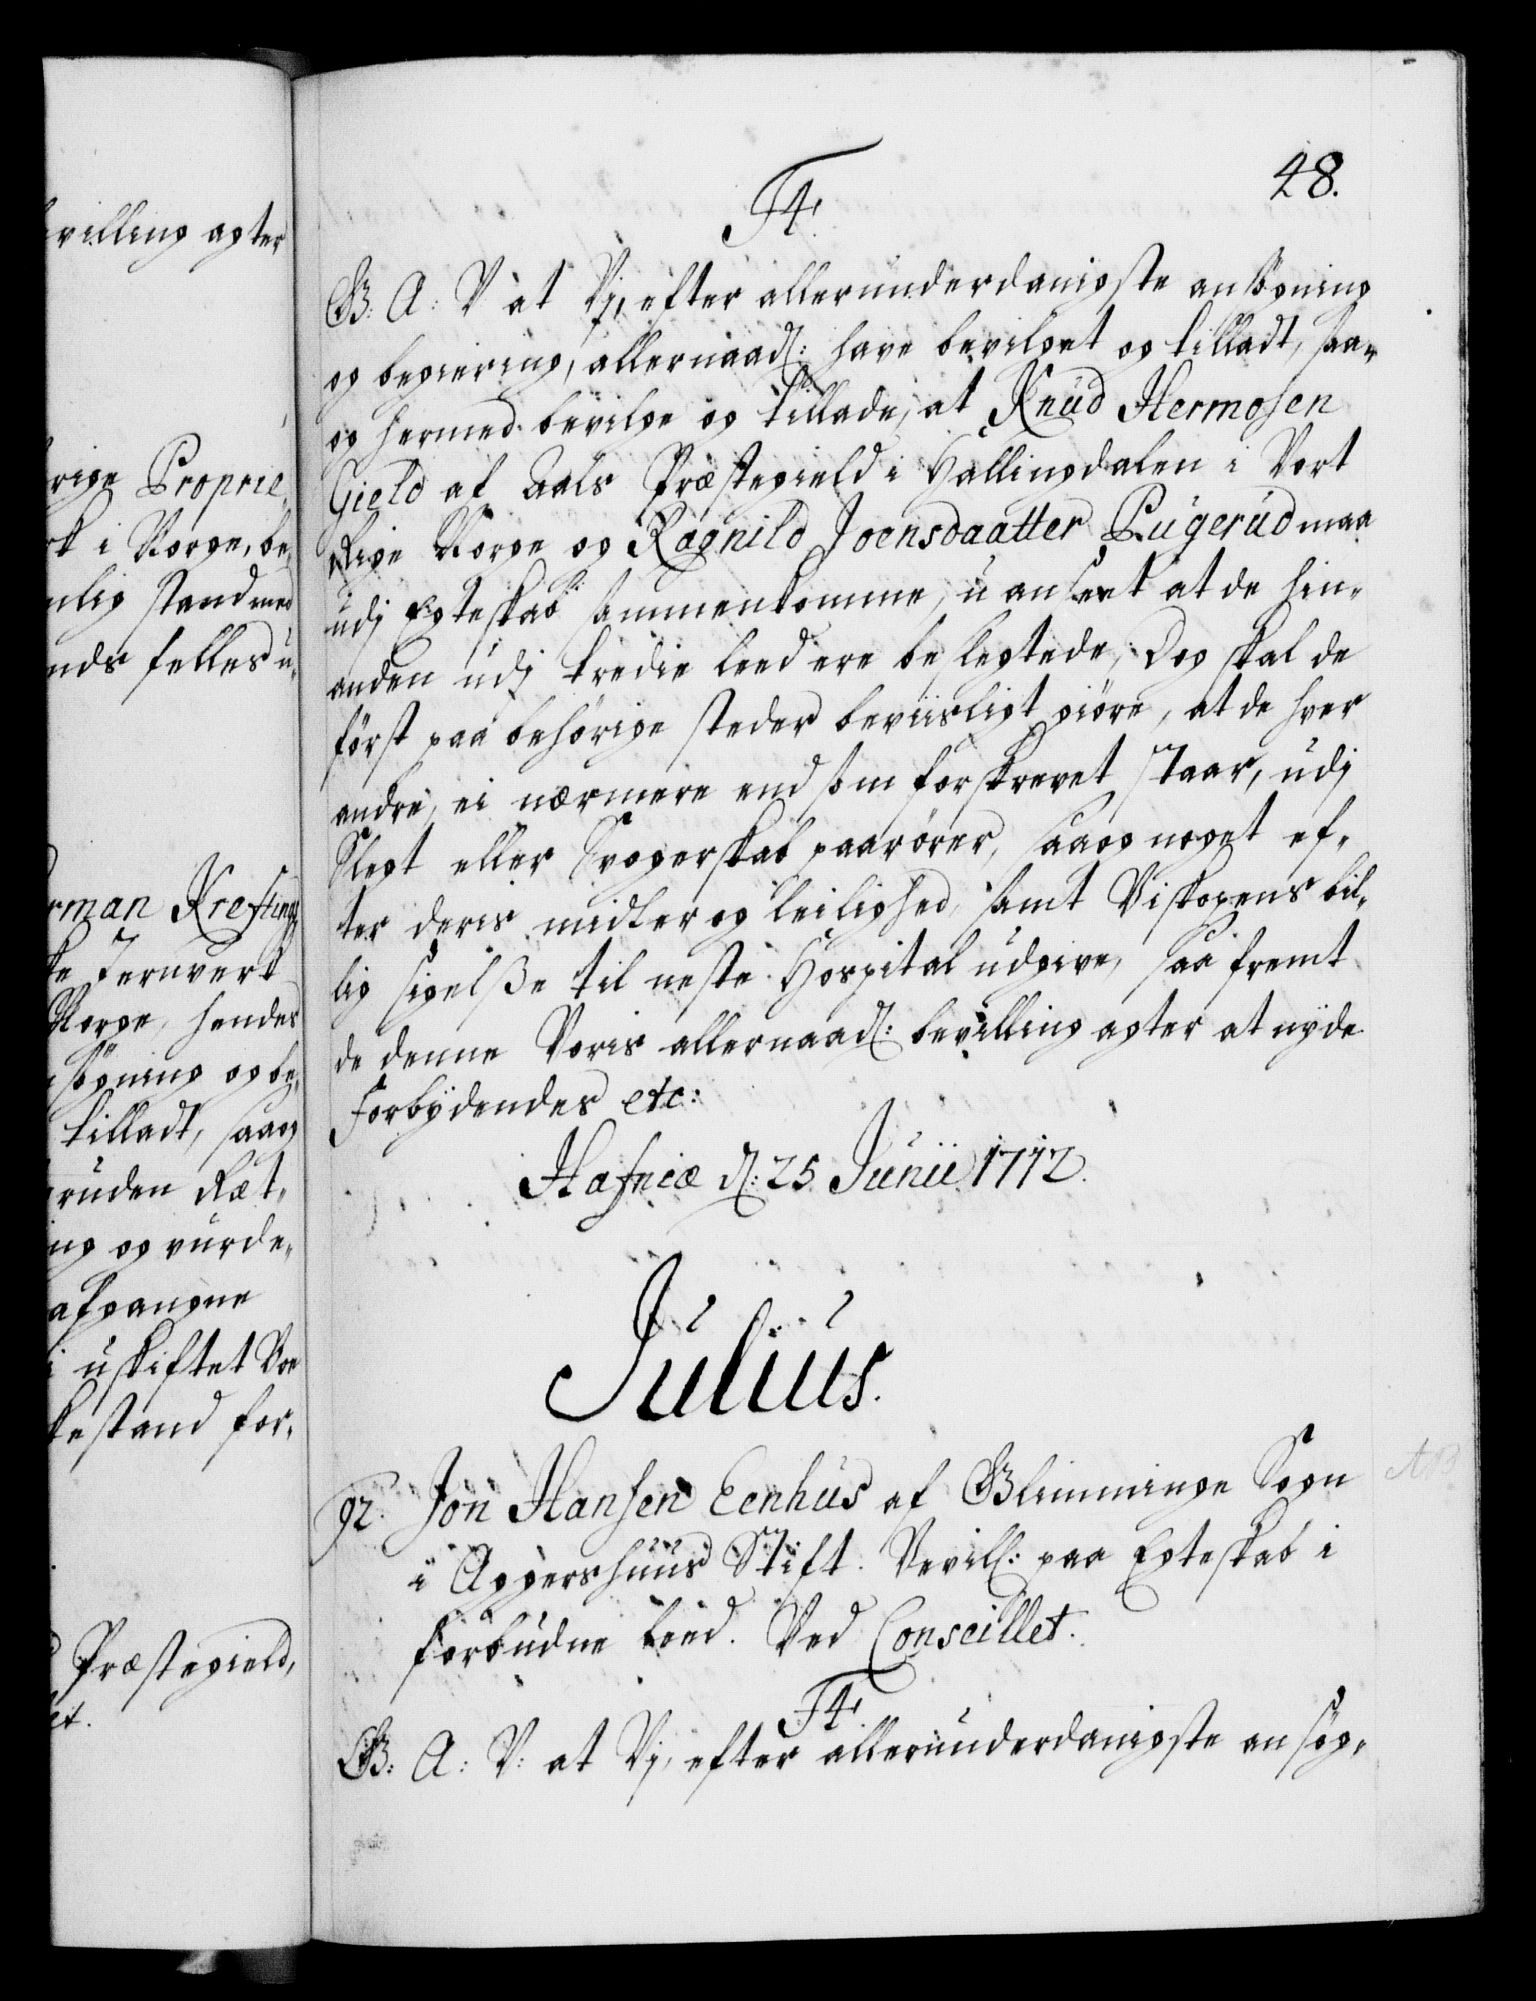 villing agter
rige Proprie¬
rk i Norge, be¬
nlig stand med
nds felles u¬
rman Krefting
ke Jernverk
Norge, hendes
søgning og be¬
tilladt, saaog
ruden Ræt¬
ng og vurde¬
afgangne
i uskiftet Boe
kestand for¬
Præstegield,
et.
48.
F4.
G: A: V at Vj, efter allerunderdanigste ansøgning
og begiering, allernaad: have bevilget og tilladt, saa¬
og hermed bevilge og tillade, at Knud Hermosen
Gield af Aals Præstegield i Hallingdalen i Vort
Rige Norge og Ragnild Joensdaatter Rugerud maa
udj Egteskab sammenkomme, u anseet at de hin¬
anden udj tredie leed ere beslegtede, Dog skal de
først paa behørige steder beviisligt giøre, at de hver
andre, ei nærmere end som forskrevet staar, udj
Slegt eller Svogerskab paarører, saa og noget ef¬
ter deris midler og leilighed, samt Biskopens bil¬
lig sigelße til neste Hospital udgive, saa fremt
de denne Voris allernaad: bevilling agter at nyde
Forbydendes etc:
Hafniæ d: 25 Junii 1712.
Julius.
92. Jon Hansen Eenhus af Glimminge Sogn
i Aggershuus Stift. Bevill: paa Egteskab i
forbudne leed. Ved Conseillet.
F4.
G: A: V: at Vj, efter allerunderdanigste ansøg¬